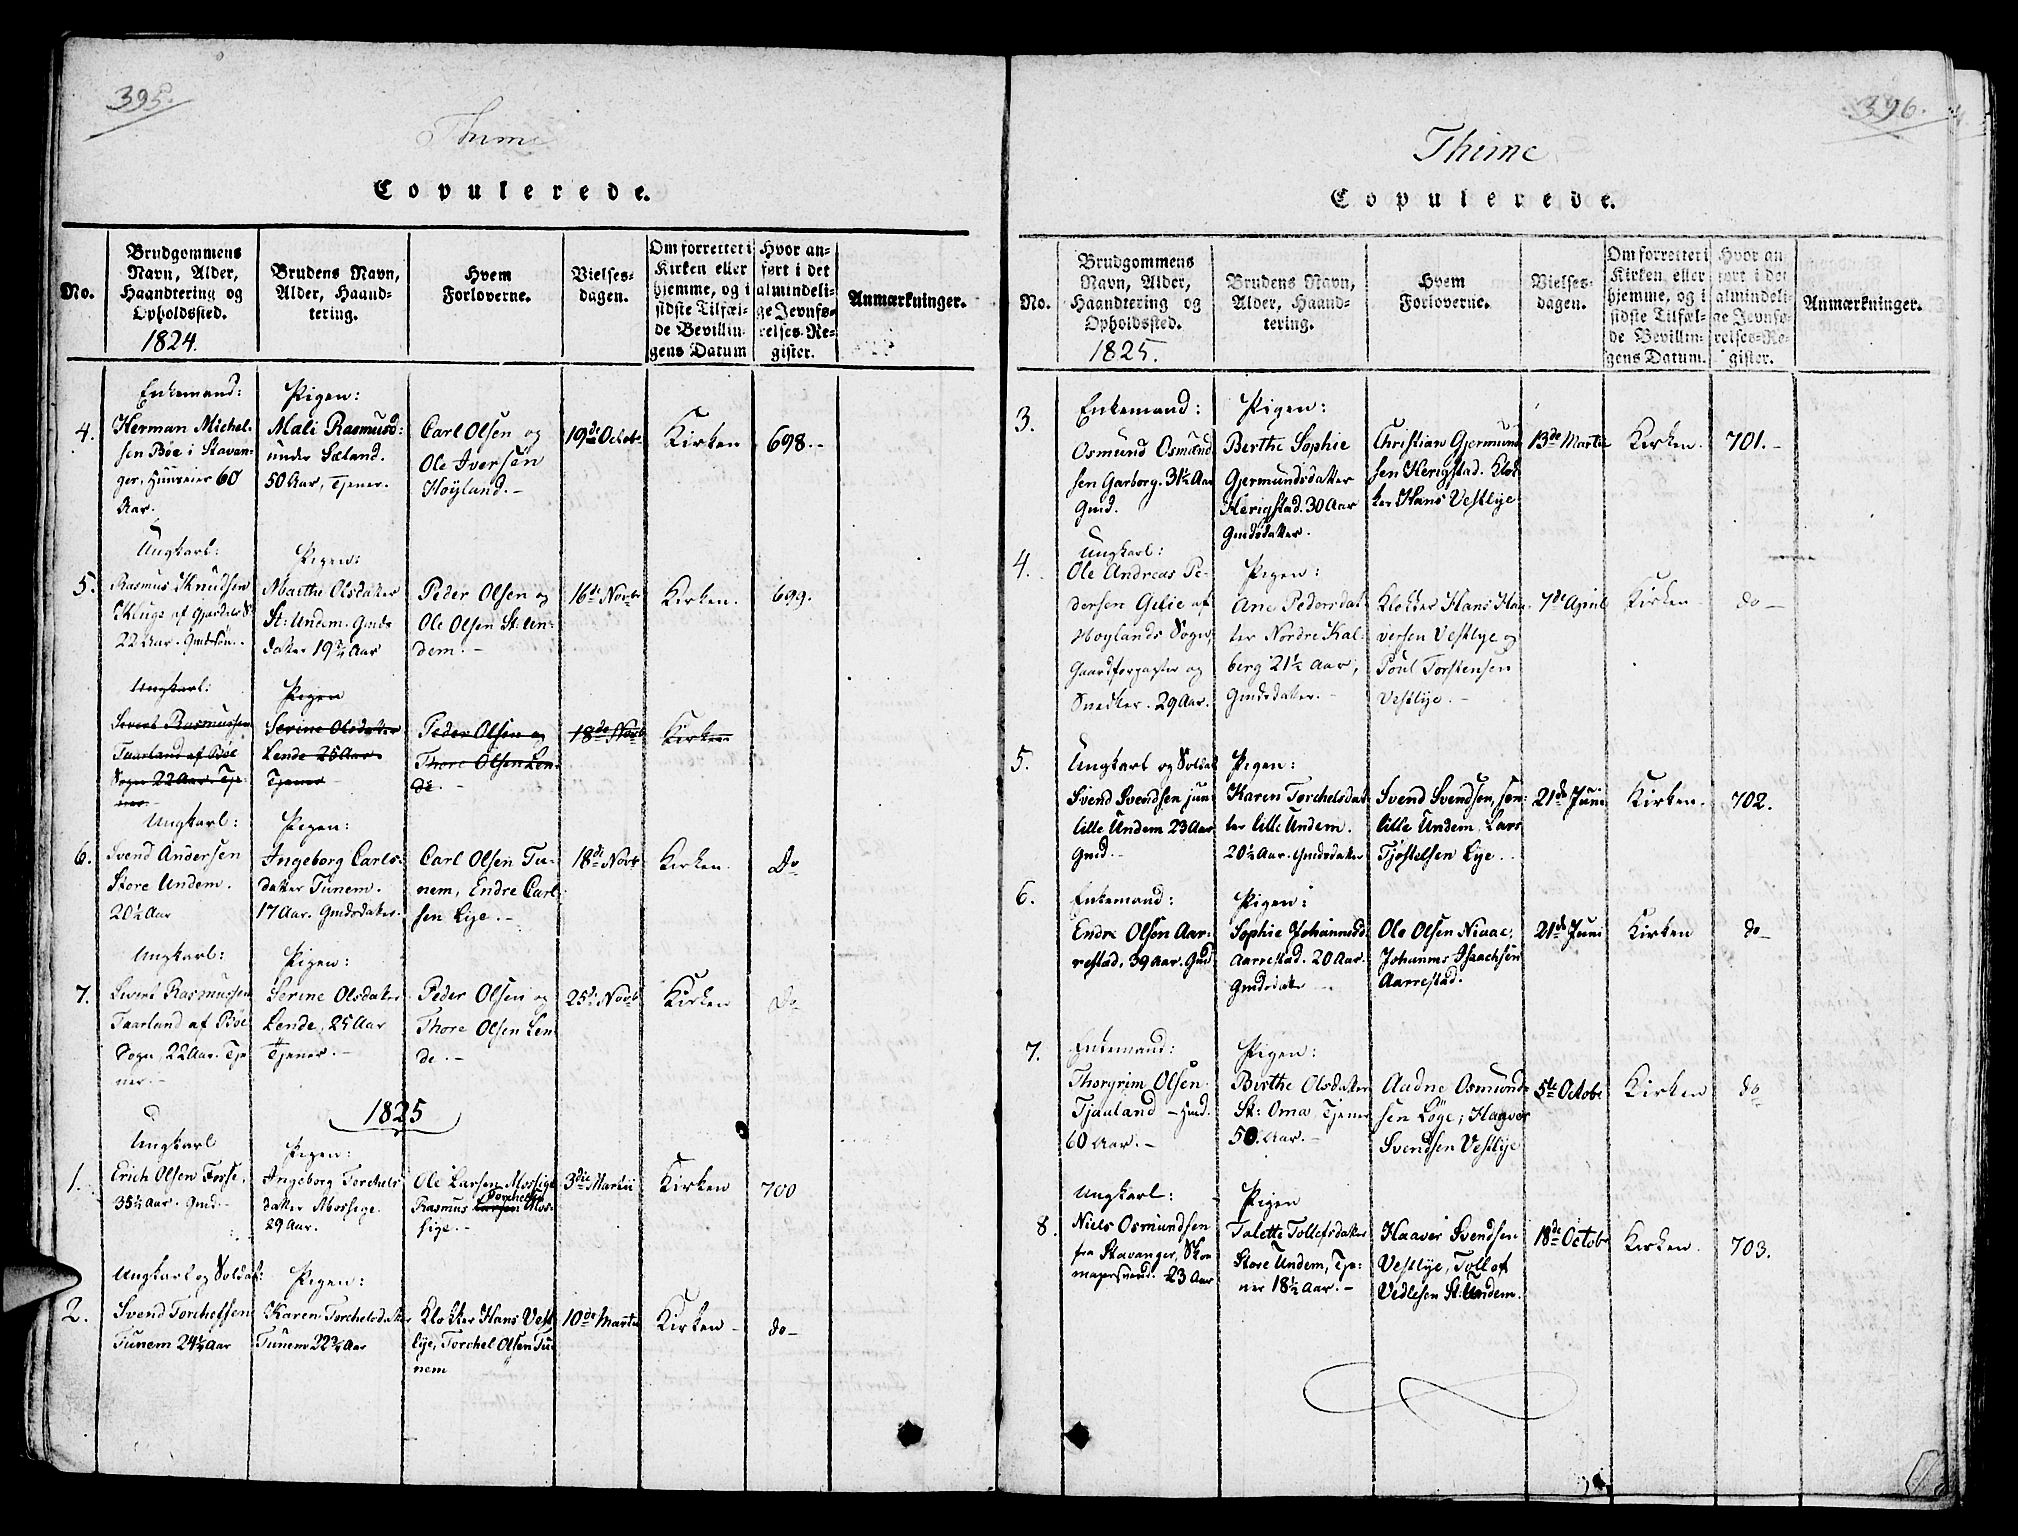 395.
Thime
Copulerede.
No.
Brudgommens
Navn, Alder,
Haandtering og
Opholdssted.
1824.
Brudens Navn,
Alder, Haand-
tering.
Hvem
Forloverne.
Vielses-
dagen.
Om forrettet i
Kirken eller
hjemme, og i
sidste Tilfæl-
de Bevillin-
gens Datum
Hvor an-
ført i det
almindeli-
ge Jevnfø-
relses-Re-
gister.
Anmærkninger.
4.
Enkemand:
Herman Michel-
sen Bøe i Stavan-
ger, Huuseier 60
Aar.
Pigen:
Mali Rasmusd:
under Sæland.
50 Aar, Tjener.
Carl Olsen og
Ole Iversen
Høyland.-
19de Octobr
Kirken
698.-
5.
Ungkarl:
Rasmus Knudsen
22 Aar. Gmdsøn.
Pigen:
Marthe Olsdatter
St: Undem. Gmds
datter 19¾ Aar
Peder Olsen og
Ole Olsen St: Un-
dem.-
16de Novbr
Kirken.
699.
Ungkarl:
Sivert Rasmussen
Taarland af Bøe
Sogn 22 Aar Tje-
ner.
Pigen
Serine Olsdatter
Lende 25 Aar
Tjener
Peder Olsen og
Thore Olsen Len-
de.-
18de Novb
Kirken
6.
Ungkarl:
Svend Andersen
Store Undem.
20½ Aar
Pigen:
Ingeborg Carls-
datter Tunem.
17 Aar. Gmdsdatter.
Carl Olsen Tu-
nem, Endre Carl-
sen Lye.-
18de Novb
Kirken.
Do
7.
Ungkarl:
Sivert Rasmussen
Taarland af Bøe
Sogn, 22 Aar. Tje
ner.-
Pigen:
Serine Olsdatter
Lende, 25 Aar
Tjener.-
Peder Olsen og
Thore Olsen Len-
de.-
25de Novb
Kirken
Do
1825
1.
Ungkarl
Erich Olsen Fosse,
35½ Aar. Gmd.-
Pigen:
Ingeborg Torchels
datter Mossige.
29 Aar.
Ole Larsen Mossige
Torchelsen
Rasmus Larsen Mos-
sige.-
3die Martii
Kirken
700
2.
Ungkarl og Soldat:
Svend Torchelsen
Tunem 24½ Aar
Pigen:
Karen Torchelsdatter
Tunem 22¾ Aar
Klokker Hans Vest
lye, Torchel Olsen Tu-
nem
10de Martii
Kirken -
do-
396.
Thime
Copulerede.
No.
Brudgommens
Navn, Alder,
Haandtering og
Opholdssted.
1825.
Brudens Navn,
Alder, Haand-
tering.
Hvem
Forloverne.
Vielses-
dagen.
Om forrettet i
Kirken eller
hjemme, og i
sidste Tilfæl-
de Bevillin-
gens Datum.
Hvor an
ført i det
almindeli-
ge Jevnfø-
relses-Re-
gister.
Anmærkninger.
3.
Enkemand:
Osmund Osmund
sen Garborg. 31½ Aar
Gmd.
Pigen:
Berthe Sophie
Gjermundsdatter
Herigstad. 30 Aar
Gmdsdatter.
Christian Gjermund
sen Herigstad. Klok
ker Hans Vestlye
13de Martii
Kirken.
701.-
4.
Ungkarl:
Ole Andreas Pe-
dersen af
Høylands Sogn,
Gaardforpagter og
Snedker. 29 Aar.
Pigen:
Ane Pedersdat
ter Nordre Kal-
berg 21½ Aar,
Gmdsdatter.-
Klokker Hans Haa-
versen Vestlye og
Poul Torstensen
Vestlye.-
7de April
Kirken -
do -
5.
Ungkarl og Soldat
Svend Svendsen jun:
lille Undem 23 Aar
Gmd.-
Pigen:
Karen Torchelsdat
ter lille Undem.
20½ Aar. Gmdsdatter
Svend Svendsen, sen:
lille Undem, Lars
Tjøstelsen Lye..
21de Juni
Kirken.
702.
6.
Enkemand:
Endre Olsen Aar-
restad, 39 Aar. Gmd
Pigen:
Sophie Johannesd:
Aarrestad. 20 Aar.
Gmdsdatter
Ole Olsen Niaae;
Johannes Isaachsen
Aarrestad.
21de Juni
Kirken
do-
7.
Enkemand:
Thorgrim Olsen
Tjaaland - Hmd.
60 Aar.-
Pigen:
Birthe Olsdatter
St: Oma, Tjener
50 Aar.-
Aadne Osmund-
sen Løge; Haaver
Svendsen Vestlye
5te Octobr
Kirken
do-
8.
Ungkarl:
Niels Osmundsen
fra Stavanger, Skoe
magersvend. 23 Aar
Pigen
Talette Tollefsdatter
Store Undem, Tje-
ner 18½ Aar.-
Haaver Svendsen
Vestlye, Tollof
Vedlesen St: Undem.
18de Octobr
Kirken.
703.